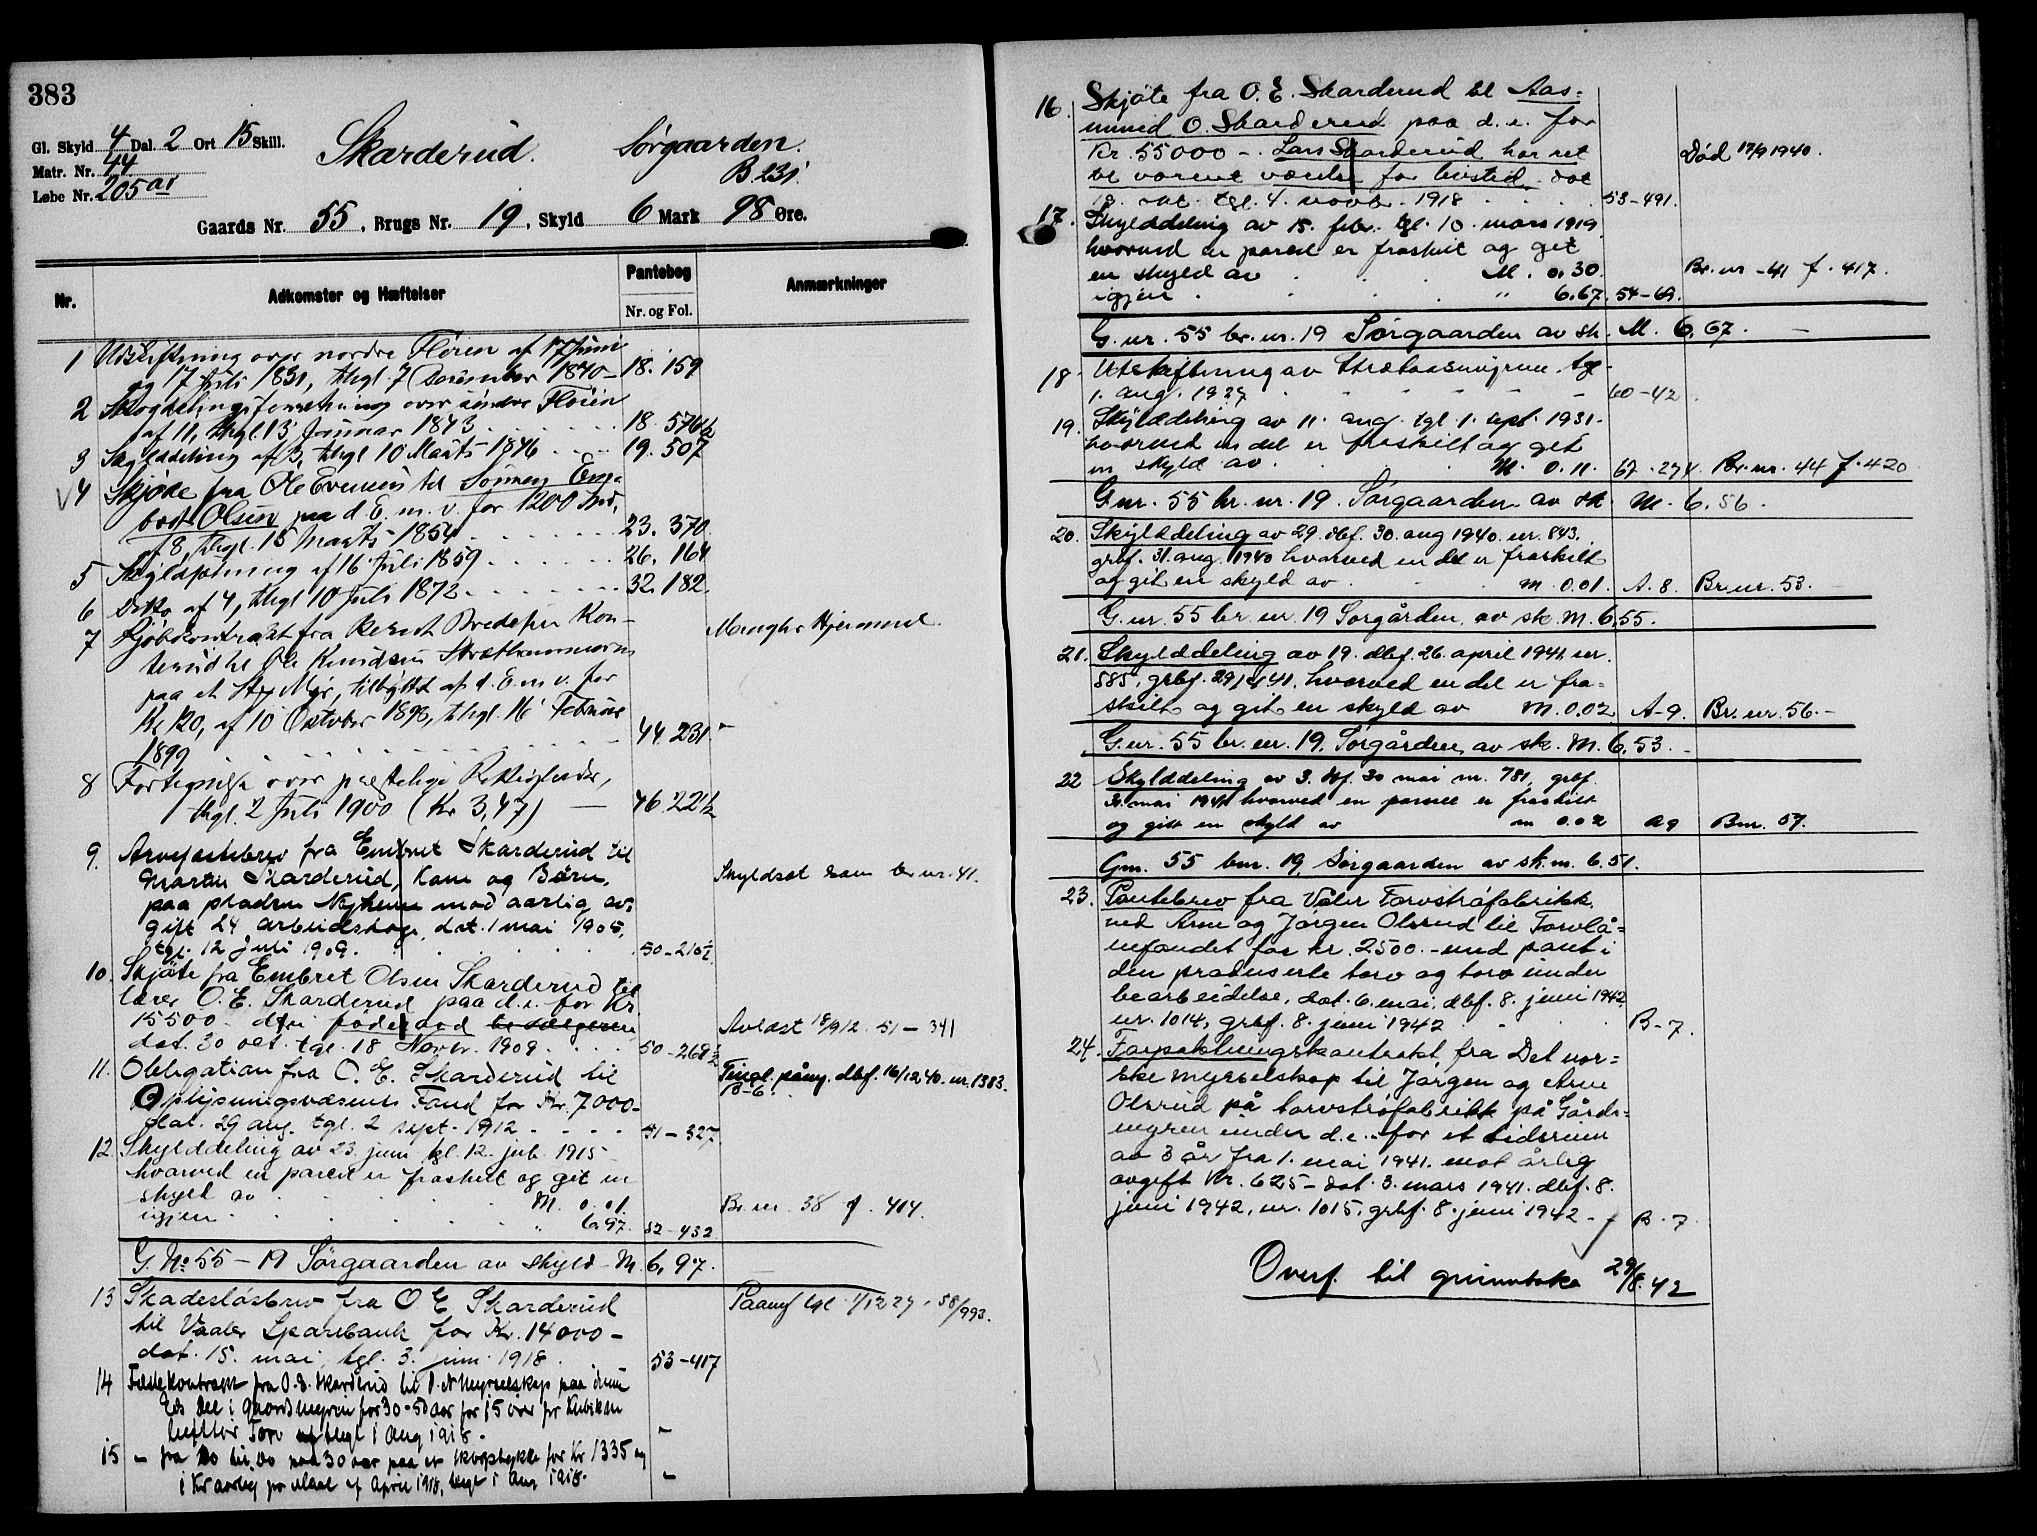 383
Gl. Skyld 4 Dal. 2 Ort 15 Skill.
Matr. Nr. 44
Løbe Nr. 205 a1
Skarderud. Sørgaarden.
B. 231.
Gaards Nr. 55, Brugs Nr. 19, Skyld 6 Mark 98 Øre.
Nr. Adkomster og Hæftelser Pantebog Nr. og Fol. Anmærkninger
1 Udskiftning over nordre Fløien af 17 Juni
og 17 Juli 1831, thgl. 7 December 1840 – 18. 159
2 Skogdelingsforretning over søndre Fløien
af 11, thgl. 13 Januar 1843 18. 576 b
3 Skylddeling af 3, thgl 10 Marts 1846 19. 507
4 Skjøde fra Ole Evensen til Sønnen Em-
bret Olsen paa d. E. m. v. for 1200 Spd,
af 8, thgl. 15 Marts 1854 23. 370.
5 Skyldsætning af 16 Juli 1859 26. 164
6 Ditto af 4, thgl 10 Juli 1872 32. 182.
7 Kjøbekontrakt fra Bredesen Kon-
terud til Ole Knudsen
paa et Stg. Myr, tilbyttet af d. E. m. v. for
Kr 120, af 10 October 1898, thgl. 16 Februar
1899 44. 231. Mangler Hjemmel.
8 Fortegnelse over præstelige Rettigheder,
thgl. 2 Juli 1900 (Kr 3,47) — 46. 221
9. Arvefæstebrev fra Embret Skarderud til
Martin Skarderud, Kone og Børn,
paa pladsen Nyheim mod aarlig av-
gift 24 arbeidsdage, dat. 1 mai 1905,
tgl. 12 juli 1909. 50–215½ Skyldsat som br. nr. 41.
10. Skjøte fra Embret Olsen Skarderud til
lærer O. E. Skarderud paa d. e. for Kr
15500 – d. fri föderaad til sælgeren
dat. 30 okt. tgl. 18 Novbr. 1909. 50–268½ Avlöst 18/9 12. 51 – 341
11. Obligation fra O. E. Skarderud til
Oplysningsvæsenets Fond for Kr. 7000–
dat. 29 aug. tgl. 2 sept. 1912 51 – 327 Tingl. påny. dbf. 16/12 40. nr. 1383.
B–6.
12. Skylddeling av 23. juni tgl. 12. juli 1915
hvorved en parcel er fraskilt og git en
skyld av M. 0.01.
igjen " 6.97. 52–432 Br. nr. 38 f. 414.
G. No 55 – 19 Sørgaarden av skyld – M. 6,97.
13 Skadesløsbrev fra O E Skarderud
til Vaaler Sparebank for Kr. 14000 –
dat. 15. mai, tgl. 3. juni 1918. 53–417 Paany tgl. 1/12 27. 58/993.
14 Fæstekontrakt fra O. E. Skarderud til D. N Myrselskap paa denne
Eds Del i Gaardsmyren for 30–50 aar for 15 øre pr Kubikm
luftør Torv thgl 1 Aug 1918. –
15 – fra Do til Do paa 30 aar paa et skogstykke for Kr 1335 og
1 Kr aarlig pr Maal af April 1918, thgl 1 Aug 1918. –
16. Skjöte fra O. E. Skarderud til Aas-
mund O. Skarderud paa d. e. for
Kr. 55000 –. Lars Skarderud har ret
til varmt værelse for livstid. dat
18. okt. tgl. 4. novbr. 1918 53–491. Död 17/9 1940.
17. Skylddeling av 15. febr. tgl. 10. mars 1919
hvorved en parcel er fraskilt og git
en skyld av M. 0.30. Br. nr – 41 f. 417.
igjen " 6.67. 54–69.
G. nr. 55 br. nr. 19 Sørgaarden av sk. M. 6.67. –
18 Utskiftning av Strætaasmyren tgl
1. aug. 1927 60–42.
19. Skylddeling av 11. aug. tgl. 1. sept. 1931.
hvorved en del er fraskilt og git
en skyld av M. 0.11. 67.274. Br. nr. 44 f. 420
G nr. 55 br. nr. 19. Sørgaarden av sk. M. 6.56.
20. Skylddeling av 29. dbf. 30. aug 1940. nr. 843.
grbf. 31. aug. 1940 hvorved en del er fraskilt
og git en skyld av M 0.01. A. 8. Br. nr. 53.
G. nr. 55 br. nr. 19 Sørgården, av sk. M. 6.55.
21. Skylddeling av 19. dbf. 26. april 1941. nr.
585, grbf. 29/4 41. hvorved en del er fra-
skilt og git en skyld av M. 0.02 A–9. Br. nr. 56. –
G. nr. 55 br. nr. 19. Sørgården av sk. M. 6.53. –
22 Skylddeling av 3. dbf. 30 mai nr. 781, grbf.
30. mai 1941 hvorved en parsell er fraskilt
og gitt en skyld av m 0.02 A9 Bnr. 57.
Gnr. 55 bnr. 19, Sørgaarden av sk. m. 6.51.
23. Pantebrev fra Våler Torvströfabrikk
ved Arne og Jörgen Olsrud til Torvlå-
nefondet for kr. 2500.– med pant i
den produserte torv og torv under
bearbeidelse, dat. 6. mai, dbf. 8. juni 1942.
nr. 1014, grbf. 8. juni 1942 B–7.
24. Forpaktningskontrakt fra Det nor-
ske myrselskap til Jörgen og Arne
Olsrud på torvströfabrikk på Gårds-
myren under d.e. for et tidsrum
av 3 år fra 1. mai 1941. mot årlig
avgift kr. 625 – dat. 3. mars 1941. dbf. 8.
juni 1942, nr. 1015, grbf. 8. juni 1942 – B. 7.
Overf. til grunnboka 29/8. 42